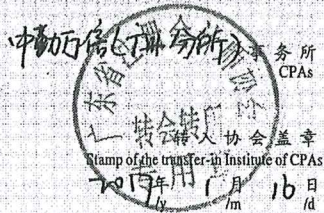 中勤万信(广州分所)事务所
CPAs
广东省注册会计师协会
转会转所
专用章
转入协会盖章
Stamp of the transfer-in Institute of CPAs
2019年1月16日
/y /m /d